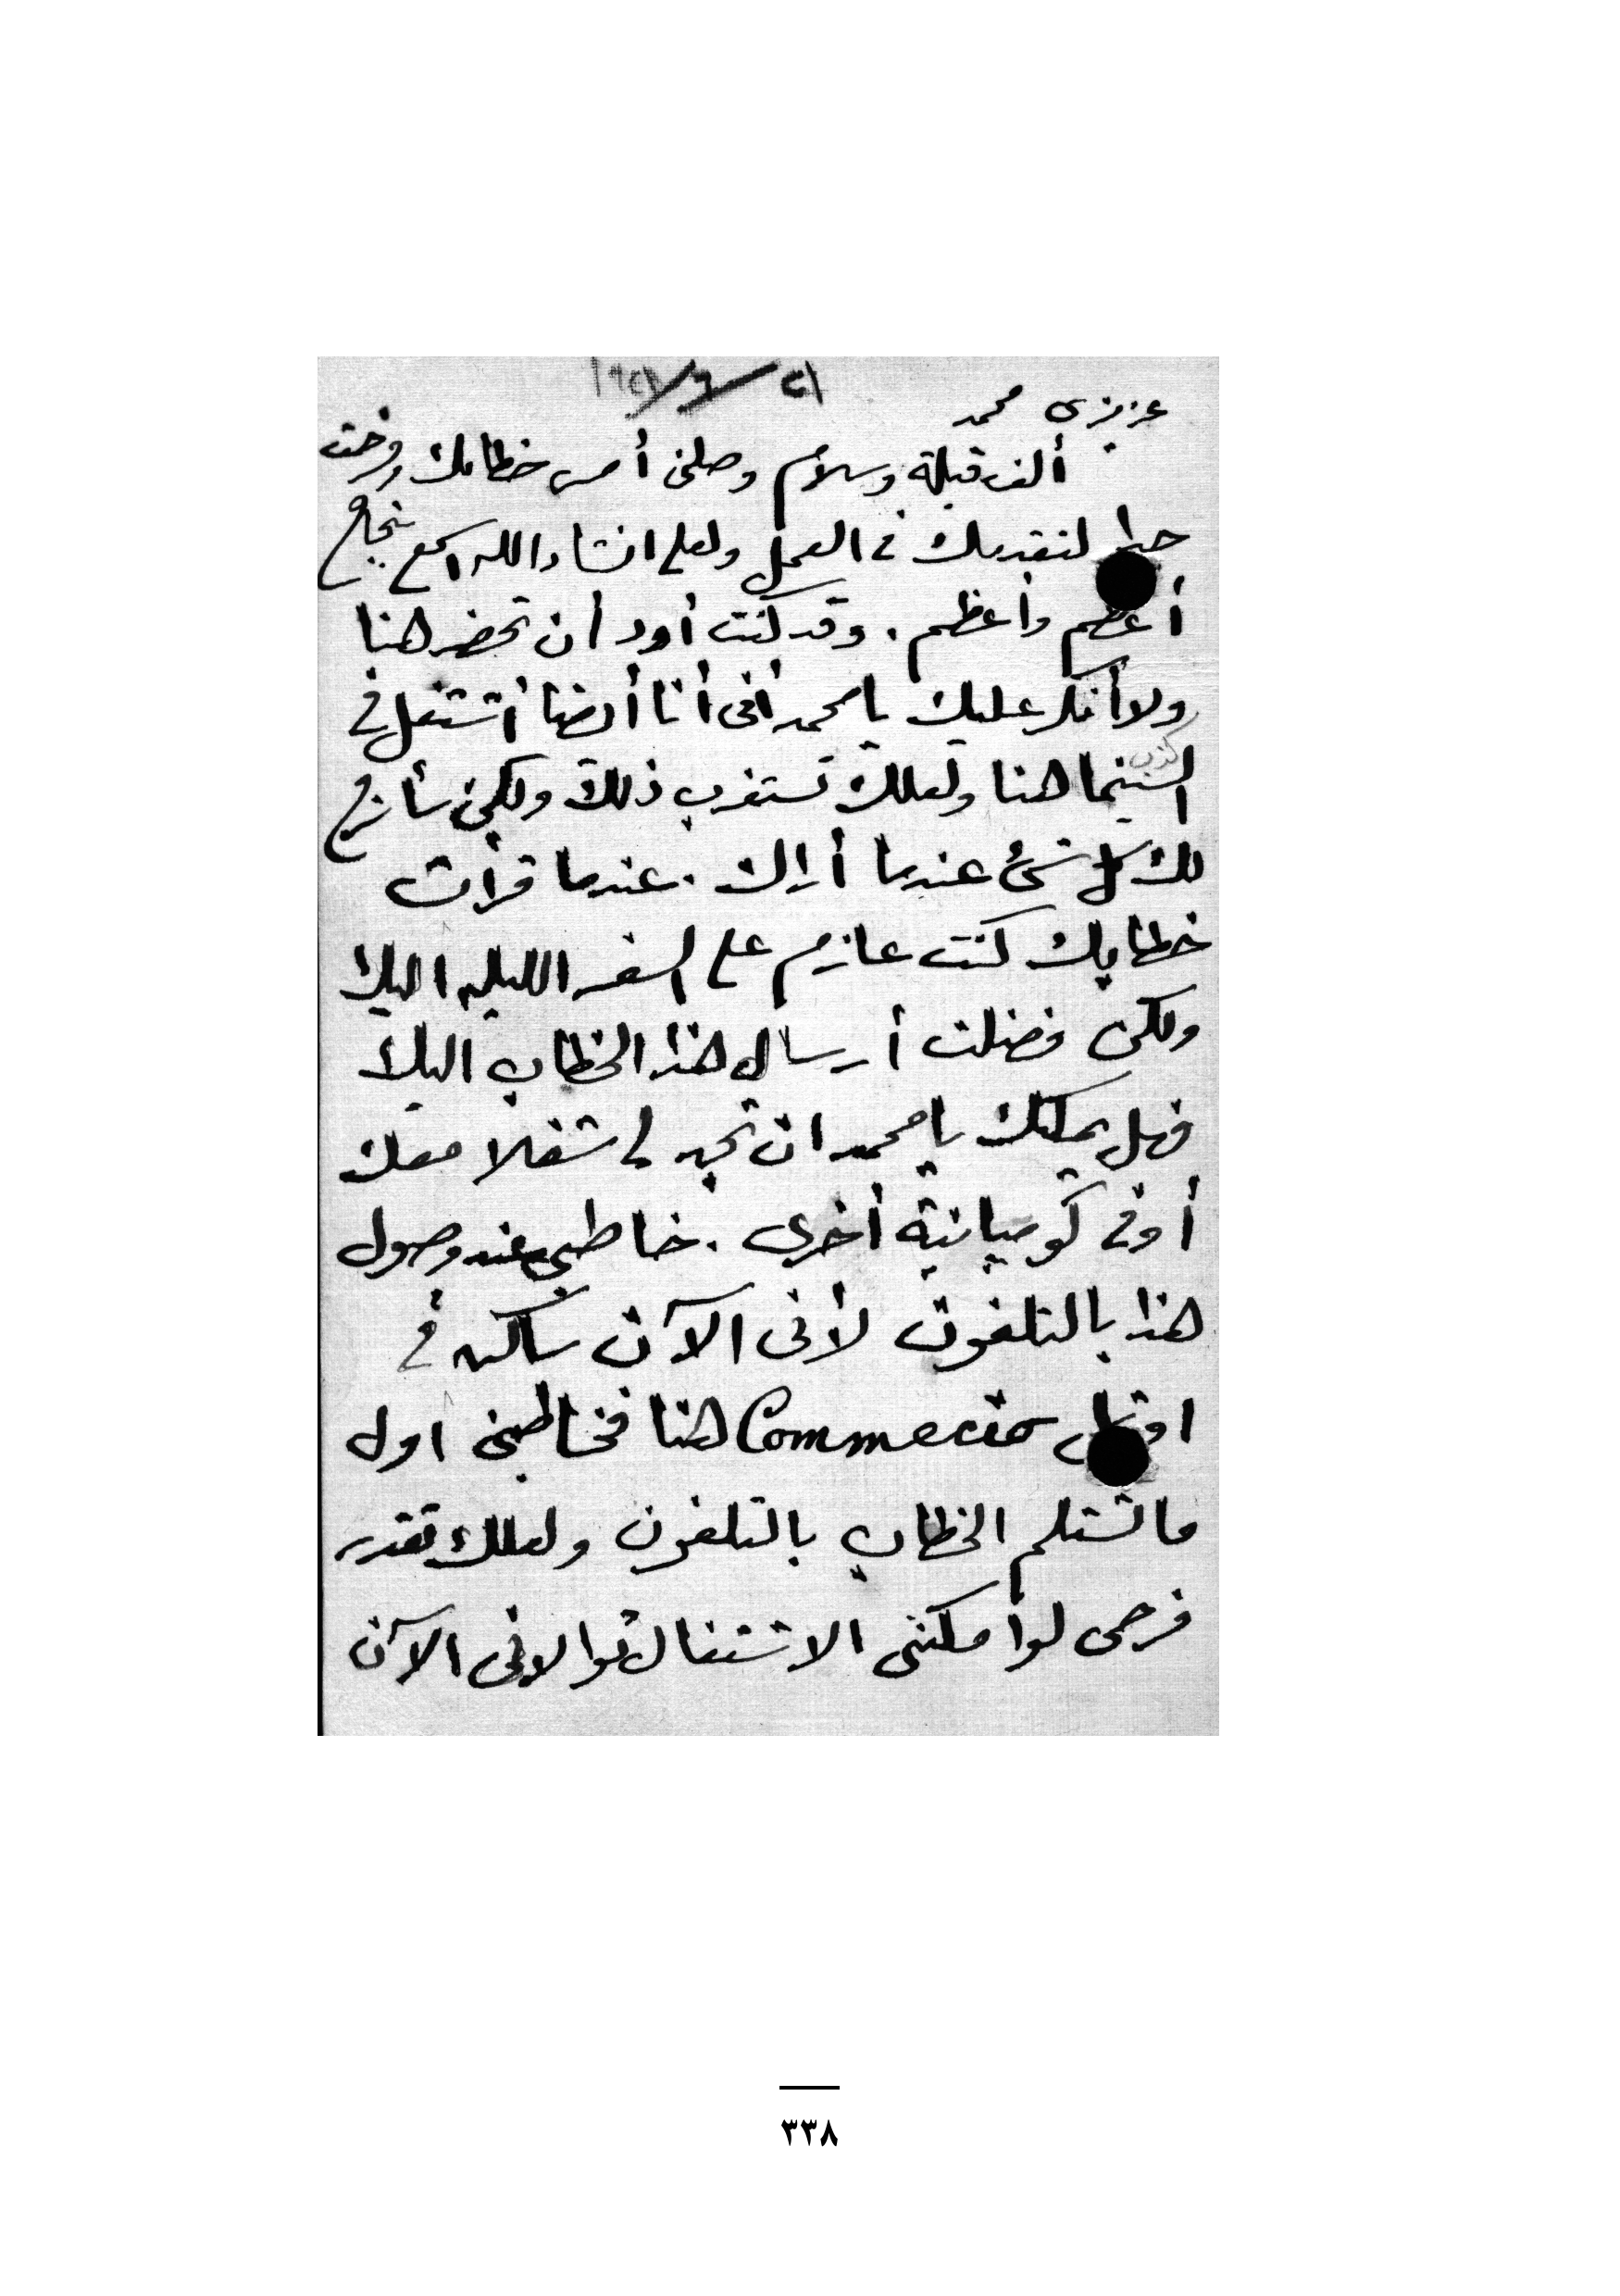 عزيزى محمد
ألف قبلة وسلام وصلنى أمس خطابك وفرحت
جدا لتقدمك فى العمل ولعلى انشاء الله اسمع بنجاح
أعظم وأعظم . وقد كنت أود أن تحضر هنا
ولا أنكر عليك يا محمد أنى أنا أيضا أشتغل فى
السينما هنا ولعلك تستغرب ذلك ولكنى سأشرح
لك كل شئ عندما أراك . عندما قرأت
خطابك كنت عازم على السفر الليله اليك
ولكن فضلت أرسال هذا الخطاب اليك
فهل يمكنك يا محمد ان تجد لى شغلا معك
أو فى كومبانية أخرى . خاطبنى عند وصول
هذا بالتلفون لأنى الآن ساكن فى
اوتيل Commercio هنا فخاطبنى اول
ما تستلم الخطاب بالتلفون ولعلك تقدر
فرحى لو أمكننى الاشتغال توا لانى الآن
٣٣٨